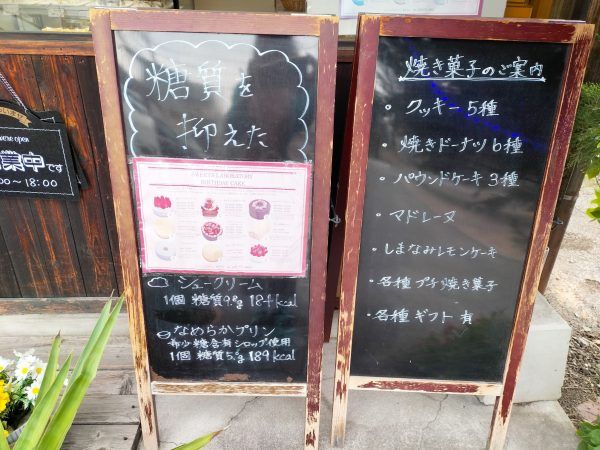 糖質を
抑えた
SWEETS LABORATORY
BIRTHDAY CAKE
シュークリーム
1個 糖質9.8g 184kcal
なめらかプリン
希少糖含有シロップ使用
1個 糖質5.5g 189kcal
焼き菓子のご案内
・クッキー 5種
・焼きドーナツ 6種
・パウンドケーキ 3種
・マドレーヌ
・しまなみレモンケーキ
・各種プチ焼き菓子
・各種ギフト有
we're open
業中です
:00〜18:00